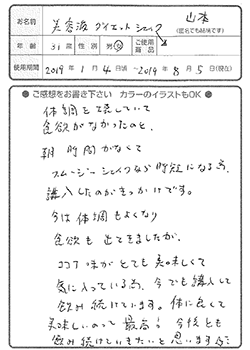 お名前 美容液ダイエットシェイク 山本
(匿名でも結構です)
年齢 31才 性別 男・女 ご使用商品
使用期間 2019年1月4日頃〜2019年8月5日(現在)
● ご感想をお書き下さい カラーのイラストもOK ●
体調を崩していて
食欲がなかったのと、
朝 時間がなくて
スムージーシェイクなら時短になる為、
購入したのがきっかけです。
今は体調もよくなり
食欲も出てきましたが、
ココア味がとても美味しくて
気に入っている為、今でも購入して
飲み続けています。体に良くて
美味しいのって最高! 今後とも
飲み続けていきたいと思います